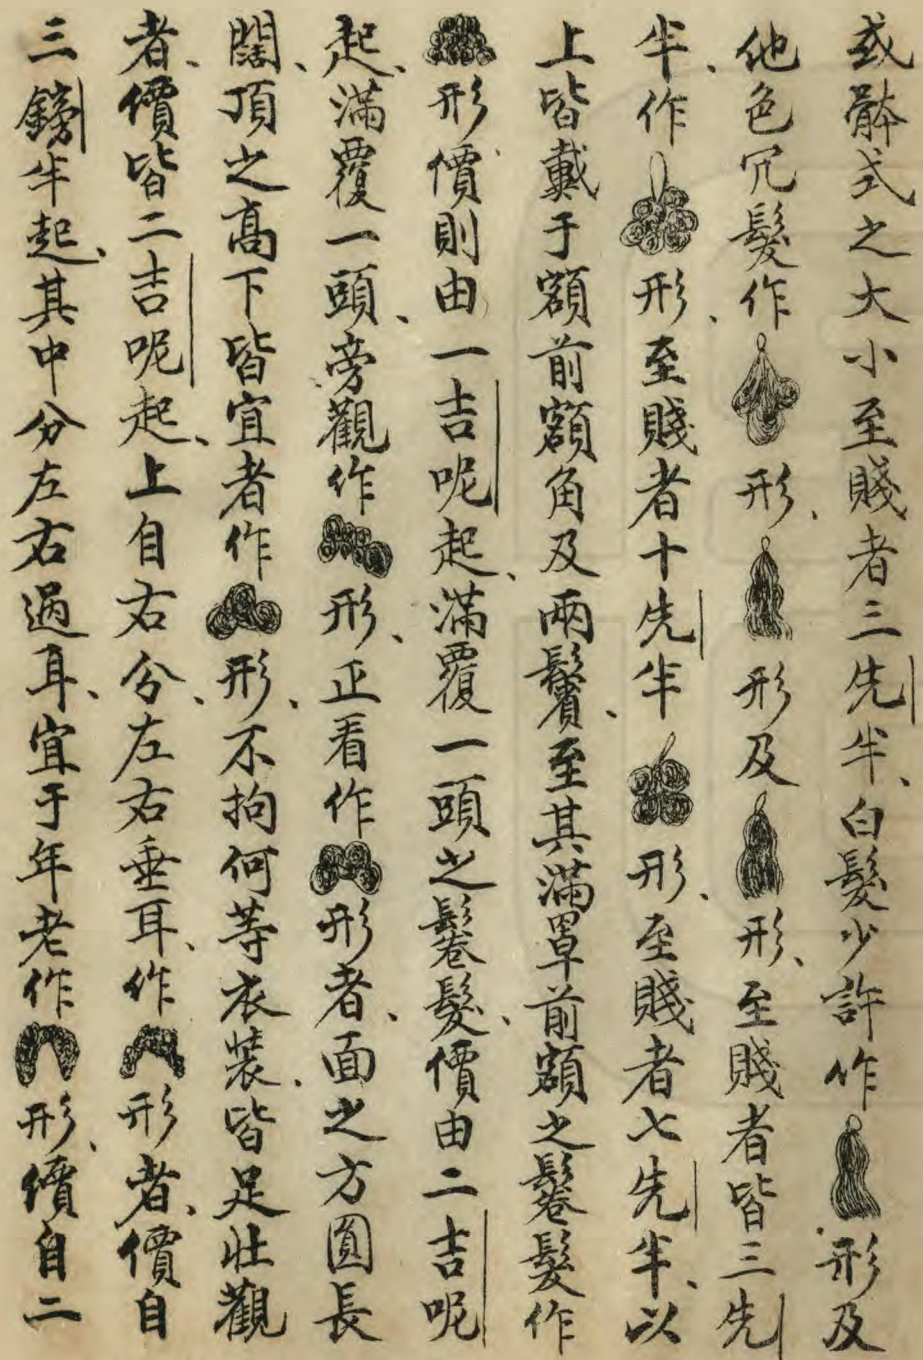 或骵式之大小至賤者三先半白髮少許作形及
他色冗髮作形形及形至賤者皆三先
半作形至賤者十先半形至賤者七先半以
上皆戴于額前額角及兩鬢至其滿罩前額之鬈髮作
形價則由一吉呢起滿覆一頭之鬈髮價由二吉呢
起滿覆一頭旁觀作形正看作形者面之方圓長
闊頂之高下皆宜者作形不拘何等衣裝皆足壯觀
者價皆二吉呢起上自右分左右垂耳作形者價自
三鎊半起其中分左右過耳宜于年老作形價自二